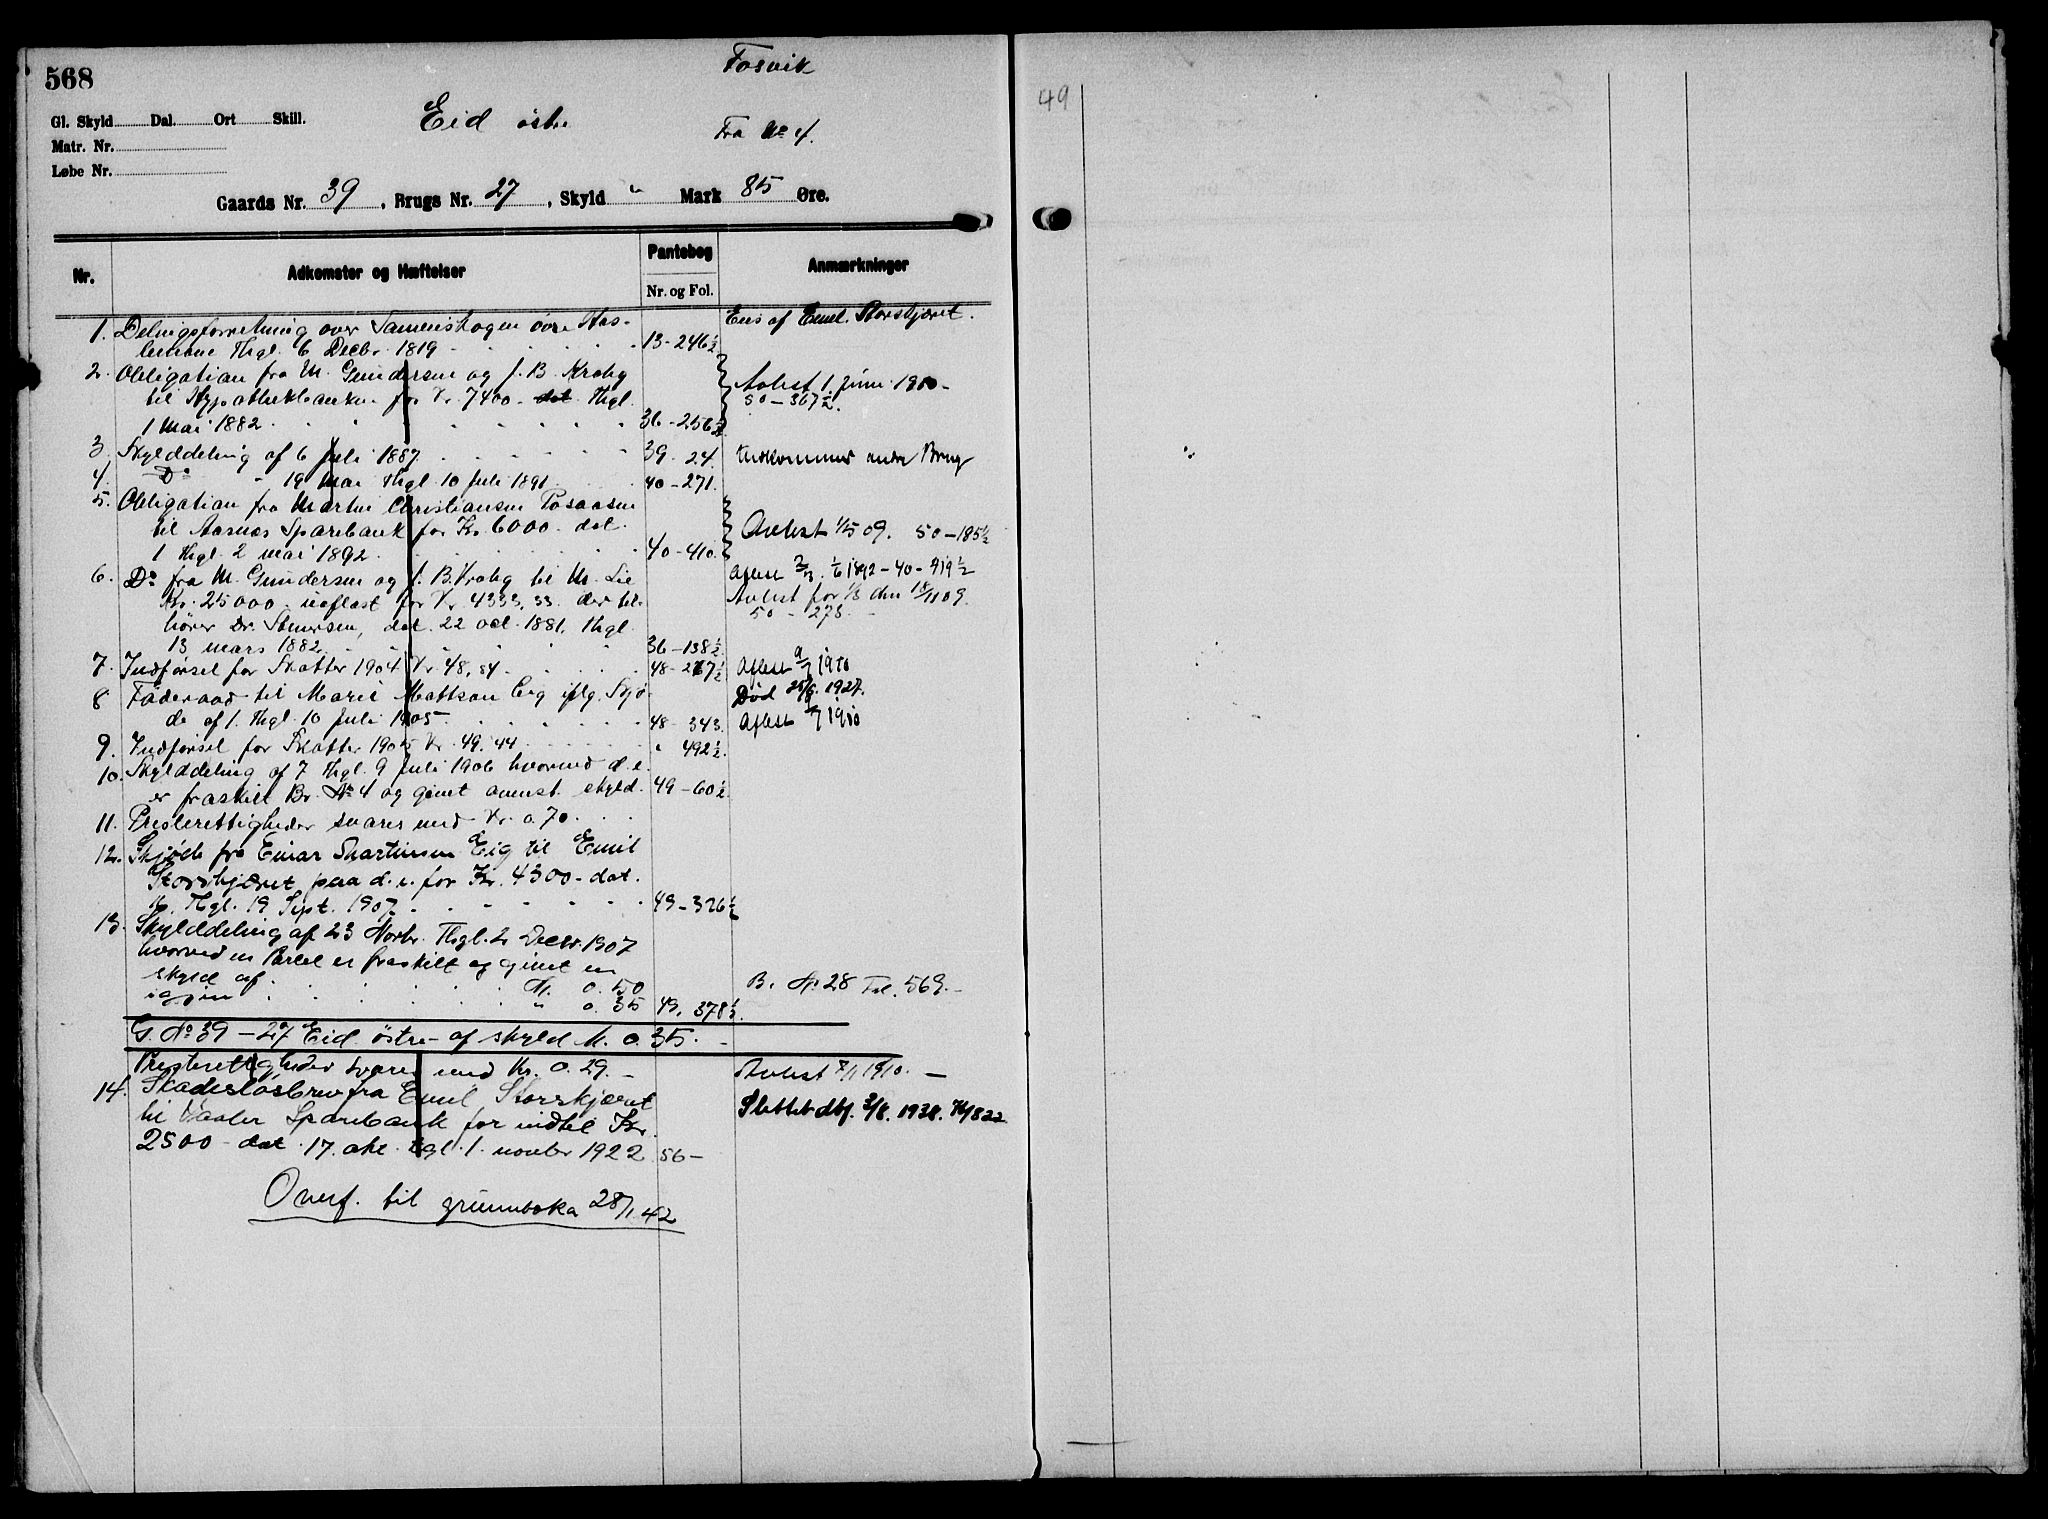 568
Fosvik
Gl. Skyld Dal. Ort Skill.
Eid østre
Fra No 4.
Matr. Nr.
Løbe Nr.
Gaards Nr. 39, Brugs Nr. 27, Skyld " Mark 85 Øre.
Nr. Adkomster og Hæftelser Pantebog Anmærkninger
Nr. og Fol.
Eies af Emil Storskjæret.
1. Delingsforretning over Sameiskogen øvre Aas-
lerne Thgl. 6 Decbr. 1819 13-246½
2. Obligation fra M. Gundersen og J. B. Krohg
til Hypothekbanken for Kr. 7400 - dat. Thgl. Avlest 1. juni 1910-
50-367½.
1 Mai 1882 36-256½
3. Skylddeling af 6 Juli 1887. 39-24. Vedkommer andre Brug
4. Do - 19 Mai Thgl 10 Juli 1891 40-271.
5. Obligation fra Martin Christiansen Posaasen
til Aasnes Sparebank for Kr 6000 - dat. Avlest 1/5 09. 50-185½
1 Thgl. 2 mai 1892. 40-410.
6. Do fra M. Gundersen og J. B. Krohg til M. Lie Aflest 2/3. 1/6 1892-40-419½
Kr. 25000 - uaflæst for Kr. 4333,33. der til- Avlest for 1/3 den 18/11 09.
hører Dr. Stenersen, dat. 22 oct. 1881. Thgl. 50-273-
13 mars 1882. 36-138½
7. Indførsel for Skatter 1904 Kr. 48,84. 48-267½ Aflest 9/7 1910
8 Føderaad til Marie Mattson Eig iflg. Skjø- Død 25/8. 1927.
de af 1. Thgl. 10 Juli 1905 48-343. Aflest 9/7 1910
9. Indførsel for Skatter 1905 Kr. 49.44 " 492½.
10. Skylddeling af 7 Thgl. 9 Juli 1906 hvorved d. e.
er fraskilt Br. No 4 og givet ovenst. skyld. 49-60½.
11. Presterettigheder svares med Kr. 0.70.
12. Skjøde fra Einar Martinsen Eig til Emil
Storskjæret paa d. e. for Kr. 4300 - dat.
16. Thgl. 19 Sept. 1907. 49-326½
13. Skylddeling af 23 Novbr. Thgl. 2 Decbr. 1907
hvorved en Parcel er fraskilt og givet en
skyld af M. 0.50 B. No 28 Fol. 569.-
igjen " 0.35 49. 378½.
G. No 39-27 Eid østre af skyld M. 0.35.-
Presterettigheder svares med Kr. 0.29.- Avlest 7/1 1910.-
14. Skadesløsbrev fra Emil Storskjæret
til Vaaler Sparebank for indtil Kr. Slettet dbf. 2/8. 1938.
2500 - dat 17. okt. tgl. 1. novbr 1922 56-
Overf. til grunnboka 28/1.42
49